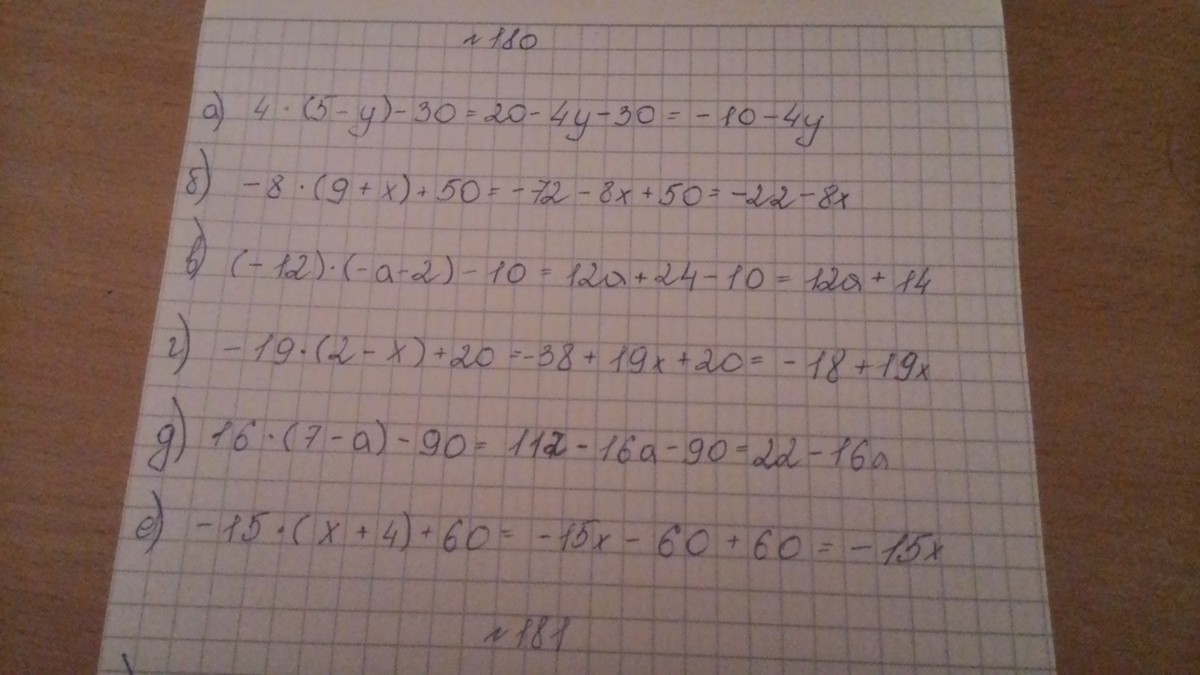 №180
а) 4 · (5 - y) - 30 = 20 - 4y - 30 = - 10 - 4y
б) - 8 · (9 + x) + 50 = - 72 - 8x + 50 = - 22 - 8x
в) (- 12) · (- a - 2) - 10 = 12a + 24 - 10 = 12a + 14
г) - 19 · (2 - x) + 20 = - 38 + 19x + 20 = - 18 + 19x
д) 16 · (7 - a) - 90 = 112 - 16a - 90 = 22 - 16a
е) - 15 · (x + 4) + 60 = - 15x - 60 + 60 = - 15x
№181